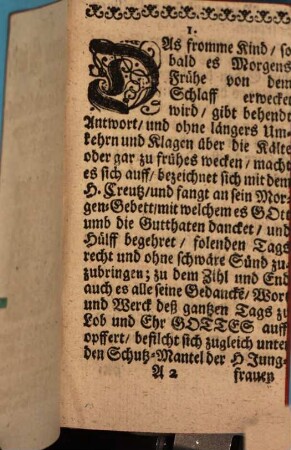 1.
DAs fromme Kind / so
bald es Morgens
Frühe von dem
Schlaff erwecket
wird / gibt behendt
Antwort / und ohne längers Um-
kehrn und Klagen über die Kälte
oder gar zu frühes wecken / macht
es sich auff / bezeichnet sich mit dem
H. Creutz / und fangt an sein Mor-
gen-Gebett / mit welchem es GOtt
umb die Gutthaten dancket / und
Hülff begehret / folenden Tags
recht und ohne schwäre Sünd zu-
zubringen; zu dem Zihl und End
auch es alle seine Gedancke / Wor
und Werck deß gantzen Tags zu
Lob und Ehr GOTTES auff
opffert / befilcht sich zugleich unter
den Schutz-Mantel der H Jung-
A 2 frauen